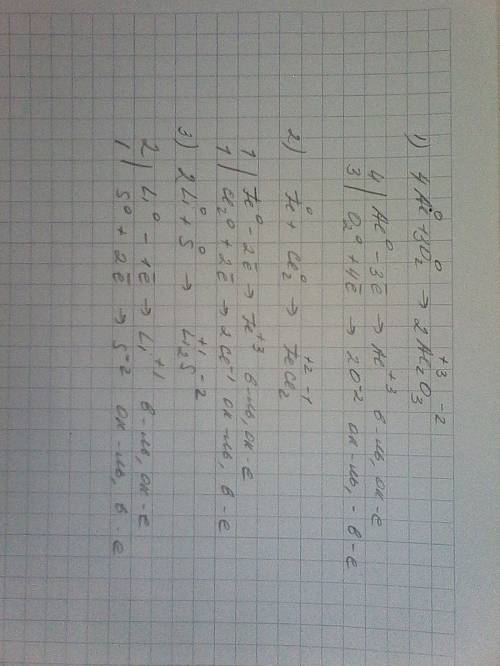 1) 4Al⁰ + 3O₂⁰ → 2Al₂⁺³O₃⁻²
4 | Al⁰ - 3ē → Al⁺³ в-ль, ок-е
3 | O₂⁰ + 4ē → 2O⁻² ок-ль, - в-е
2) Fe⁰ + Cl₂⁰ → Fe⁺²Cl₂⁻¹
1 | Fe⁰ - 2ē → Fe⁺³ в-ль, ок-е
1 | Cl₂⁰ + 2ē → 2Cl⁻¹ ок-ль, в-е
3) 2Li⁰ + S⁰ → Li₂⁺¹S⁻²
2 | Li⁰ - 1ē → Li⁺¹ в-ль, ок-е
1 | S⁰ + 2ē → S⁻² ок-ль, в-е